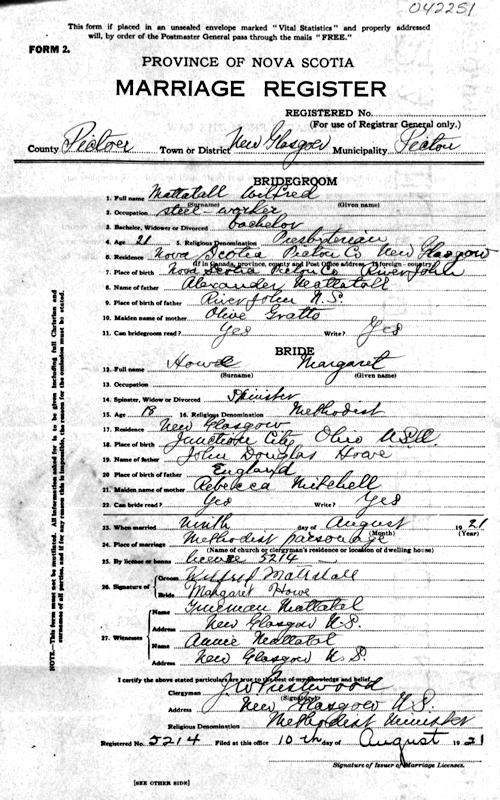 042251
This form if placed in an unsealed envelope marked "Vital Statistics" and properly addressed
will, by order of the Postmaster General pass through the mails "FREE."
FORM 2.
PROVINCE OF NOVA SCOTIA
MARRIAGE REGISTER
REGISTERED No.
(For use of Registrar General only.)
County Pictou Town or District New Glasgow Municipality Pictou
BRIDEGROOM
1. Full name Mattatall Wilfred
(Surname) (Given name)
2. Occupation steel-worker
3. Bachelor, Widower or Divorced bachelor
4. Age 21 5. Religious Denomination Presbyterian
6. Residence Nova Scotia Pictou Co New Glasgow
(If in Canada, province, county and Post Office address. If foreign - country.)
7. Place of birth Nova Scotia Pictou Co River John
8. Name of father Alexander Mattatall
9. Place of birth of father River John N.S.
10. Maiden name of mother Olive Gratto
11. Can bridegroom read? Yes Write? Yes
BRIDE
12. Full name Howe Margaret
(Surname) (Given name)
13. Occupation
14. Spinster, Widow or Divorced Spinister
15. Age 18 16. Religious Denomination Methodist
17. Residence New Glasgow
18. Place of birth Junction City Ohio U.S.A.
19. Name of father John Douglas Howe
20. Place of birth of father England
21. Maiden name of mother Rebecca Mitchell
22. Can bride read? Yes Write? Yes
23. When married ninth day of August 1921
(Month) (Year)
24. Place of marriage Methodist parsonage
(Name of church or clergyman's residence or location of dwelling house)
25. By license or banns license 5214
26. Signature of Groom Wilfred Mattatall
Bride Margaret Howe
27. Witnesses Name Mattatal
Address New Glasgow N.S.
Name Annie Mattatal
Address New Glasgow N.S.
I certify the above stated particulars are true to the best of my knowledge and belief.
Clergyman J W Prestwood
(Signature)
Address New Glasgow N.S.
Religious Denomination Methodist Minister
Registered No. 5214 Filed at this office 10th day of August 1921
Signature of Issuer of Marriage Licenses.
[SEE OTHER SIDE]
NOTE.—This form must not be mutilated. All information asked for is to be given including full Christian and
surnames of all parties, and if for any reason this is impossible, the reason for the omission must be stated.